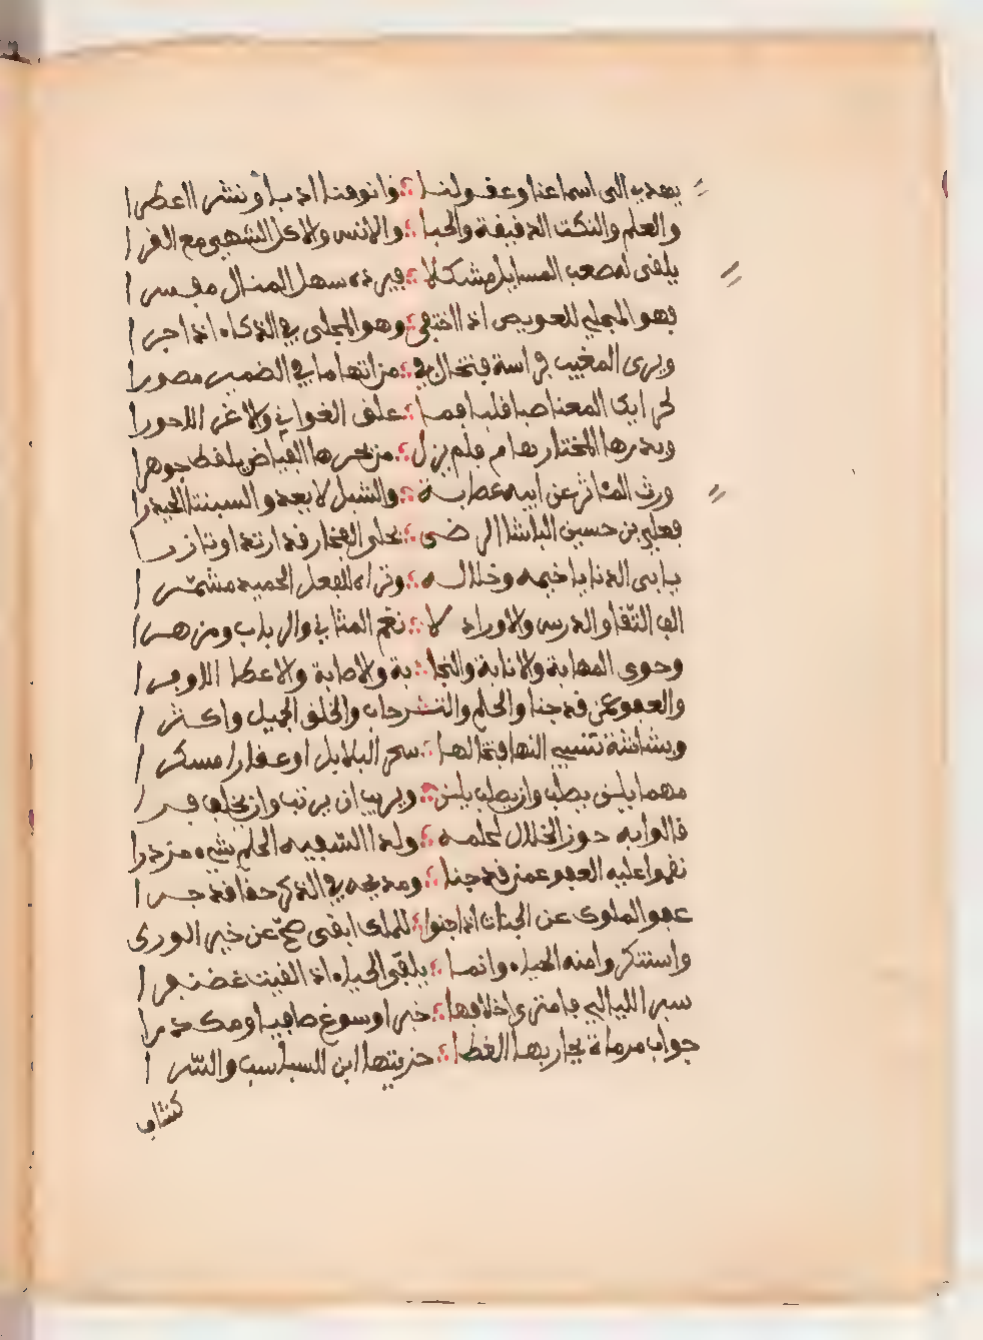 يهدي الى اسماعنا وعقولنا ؛ وانوفنا ادبا ونشرا اعطرا
والعلم والنكت الدقيقة والحبا ؛ والانس والاكل الشهي مع القرا
يلقى له صعب المسايل مشكلا ؛ فيرده سهل المنال مفسرا
فهو المجلي للعويص اذا اختفى ؛ وهو المجلى في الذكاء اذا جرا
ويرى المغيب فراسة فتخال في ؛ مراتها ما في الضمير مصورا
المعنا صبا قلبا فما ؛ علق الغواني والاغن الاحورا
وبدرها المختار هام فلم يزل ؛ من بحرها الفياض يلفظ جوهرا
ورث المئاثر عن ابيه عصابة ؛ والشبل لا يعدو السبنتا الحيدرا
فعلي بن حسين الباشا الرضى ؛ بحلى الفخار قد ارتدا وتازرا
يابى الدنايا خيمه وخلاله ؛ وتراه للفعل الحميد مشمرا
الف التقا والدرس والاوراد لا ؛ نغم المثاني والرباب ومزهرا
وحوى المهابة والانابة والنجا ؛ بة والاصابة والاعطا الاوفرا
والعفو عمن قد جنا والحلم والتسرحاب والخلق الجميل واكثرا
وبشاشة تنسي النها فتخالها ؛ سحر البلابل او عقارا مسكرا
مهما يلن يصلب وان يصلب يلن ؛ ويريب ان يرتب وان يخلف فرا
قالوا به خوز الخلال لحلمه ؛ ولذا السفيه الحلم شيء مزدرا
نقموا عليه العفو عمن قد جنا ؛ ومديحه في الذكر حقا قد جرا
عفو الملوك عن الجنات اذا جنوا ؛ للملك ابقى صح عن خير الورى
واستنكروا منه الحياء وانما ؛ يلقى الحياء اذا الفيت غضنفرا
سبر الليالي فامترى اخلافها ؛ خبرا وسوغ صافيا ومكدرا
جواب مرماة يحار بها القطا ؛ خريتها ابن للسباسب والسرا
كشاف